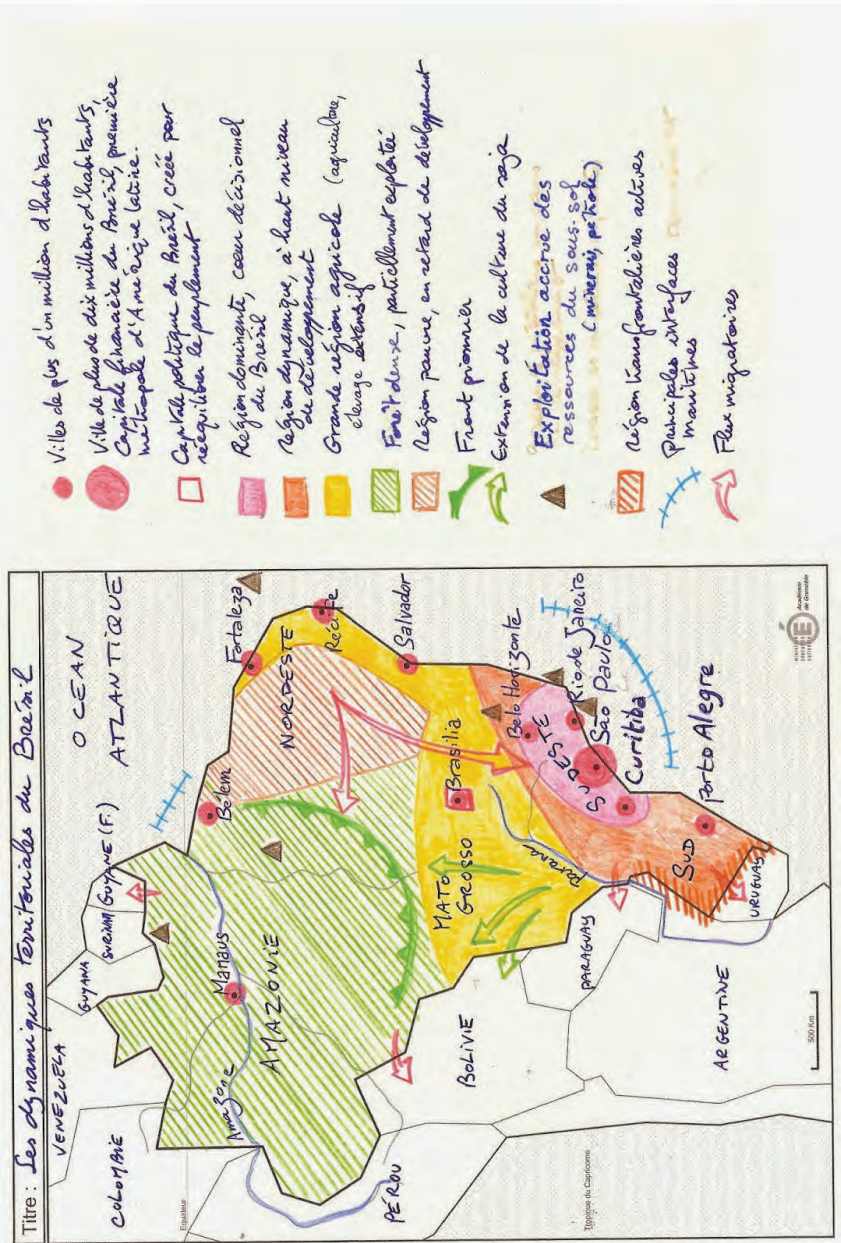 Titre : Les dynamiques territoriales du Brésil
VENEZUELA
COLOMBIE
GUYANA
SURINAM
GUYANE (F.)
OCEAN
ATLANTIQUE
Equateur
Amazone
Manaus
AMAZONIE
Bélem
Fortaleza
NORDESTE
Récife
Salvador
PÉROU
BOLIVIE
MATO
GROSSO
Brasilia
Belo Horizonte
SUDESTE
Rio de Janeiro
São Paulo
Curitiba
Paraná
PARAGUAY
SUD
Porto Alegre
URUGUAY
ARGENTINE
Tropique du Capricorne
500 Km
Académie
de Grenoble
Villes de plus d'un million d'habitants
Ville de plus de dix millions d'habitants,
Capitale financière du Brésil, première
métropole d'Amérique latine.
Capitale politique du Brésil, créée pour
rééquilibrer le peuplement
Région dominante, coeur décisionnel
du Brésil
Région dynamique, à haut niveau
de développement
Grande région agricole (agriculture,
élevage extensif
Forêt dense, partiellement exploitée
Région pauvre, en retard de développement
Front pionnier
Extension de la culture du soja
Exploitation accrue des
ressources du sous-sol
(minerais, pétrole)
Région transfrontalières actives
Principales interfaces
maritimes
Flux migratoires